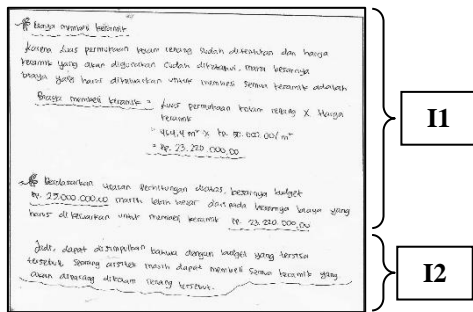 Biaya membeli keramik
Karena luas permukaan kolam renang sudah ditentukan dan harga
keramik yang akan digunakan sudah diketahui, maka besarnya
biaya yang harus dikeluarkan untuk membeli semua keramik adalah
Biaya membeli keramik = luas permukaan kolam renang x Harga
keramik
= 464,4 m² x Rp 50.000,00/m²
= Rp. 23.220.000,00
Berdasarkan uraian perhitungan diatas, besarnya budget
Rp. 25.000.000,00 masih lebih besar daripada besarnya biaya yang
harus dikeluarkan untuk membeli keramik Rp. 23.220.000,00
Jadi, dapat disimpulkan bahwa dengan budget yang tersisa
tersebut, seorang arsitek masih dapat membeli semua keramik yang
akan dipasang dikolam renang tersebut.
I1
I2